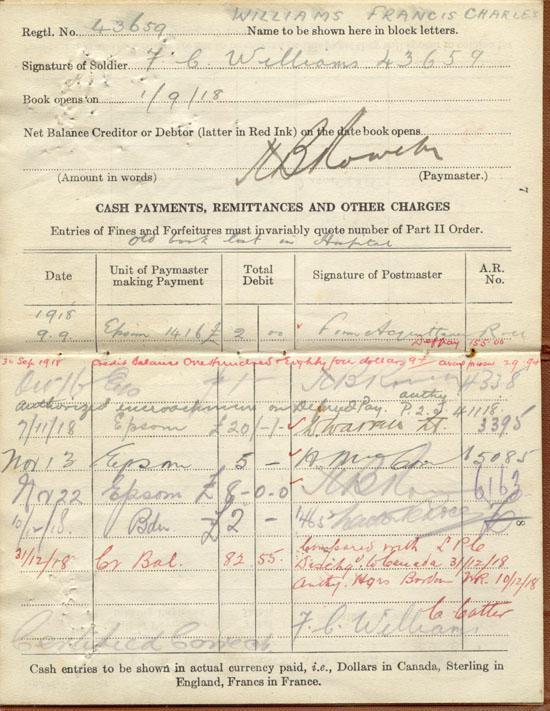 WILLIAMS FRANCIS CHARLES
Regtl. No. 43659 Name to be shown here in block letters.
Signature of Soldier F C Williams 43659
Book opens on 1/9/18
Net Balance Creditor or Debtor (latter in Red Ink) on the date book opens
(Amount in words) (Paymaster.)
7
CASH PAYMENTS, REMITTANCES AND OTHER CHARGES
Entries of Fines and Forfeitures must invariably quote number of Part II Order.
Old book lost in Hospital
Date Unit of Paymaster making Payment Total Debit Signature of Postmaster A.R. No.
1918
9.9. Epsom 1416 £ 2 00 From Acquittance Roll
Def pay 155 00
30 Sep 1918 Credit Balance One Hundred & Eighty four dollars 29.94
4338
authorized on Deferred Pay. authy P. 2. 41118.
7/11/18 Epsom £20/-/- 3395
Nov 13 Epsom 5 - 5085
Nov 22 Epsom £8-0-0 6163
Bdn £2 -
8
31/12/18 Cr Bal. 82 55. Compared with L P C
"Dischg" to Canada 31/12/18
Authy. Hqrs Bordon 10/12/18
C Cotter
F. C. Williams
Certified Correct
Cash entries to be shown in actual currency paid, i.e., Dollars in Canada, Sterling in
England, Francs in France.